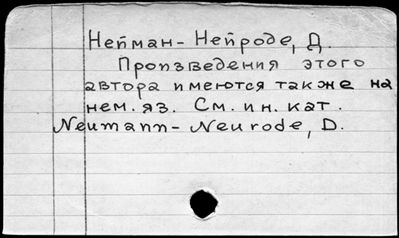 Нейман-Нейроде, Д.
Произведения этого
автора имеются также на
нем. яз. См. ин. кат.
Neumann-Neurode, D.